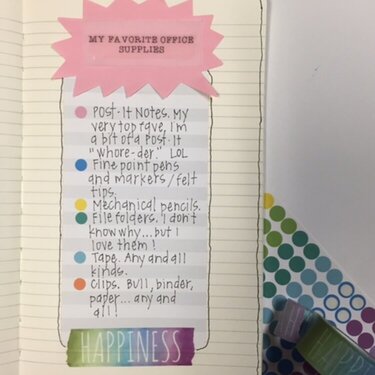 MY FAVORITE OFFICE
SUPPLIES
Post-It Notes. My
very top fave, I'm
a bit of a Post-It
"whore-der." LOL
Fine point pens
and markers/felt
tips.
Mechanical pencils.
File folders. I don't
know why...but I
love them!
Tape. Any and all
kinds.
Clips. Bull, binder,
paper...any and
all!
HAPPINESS